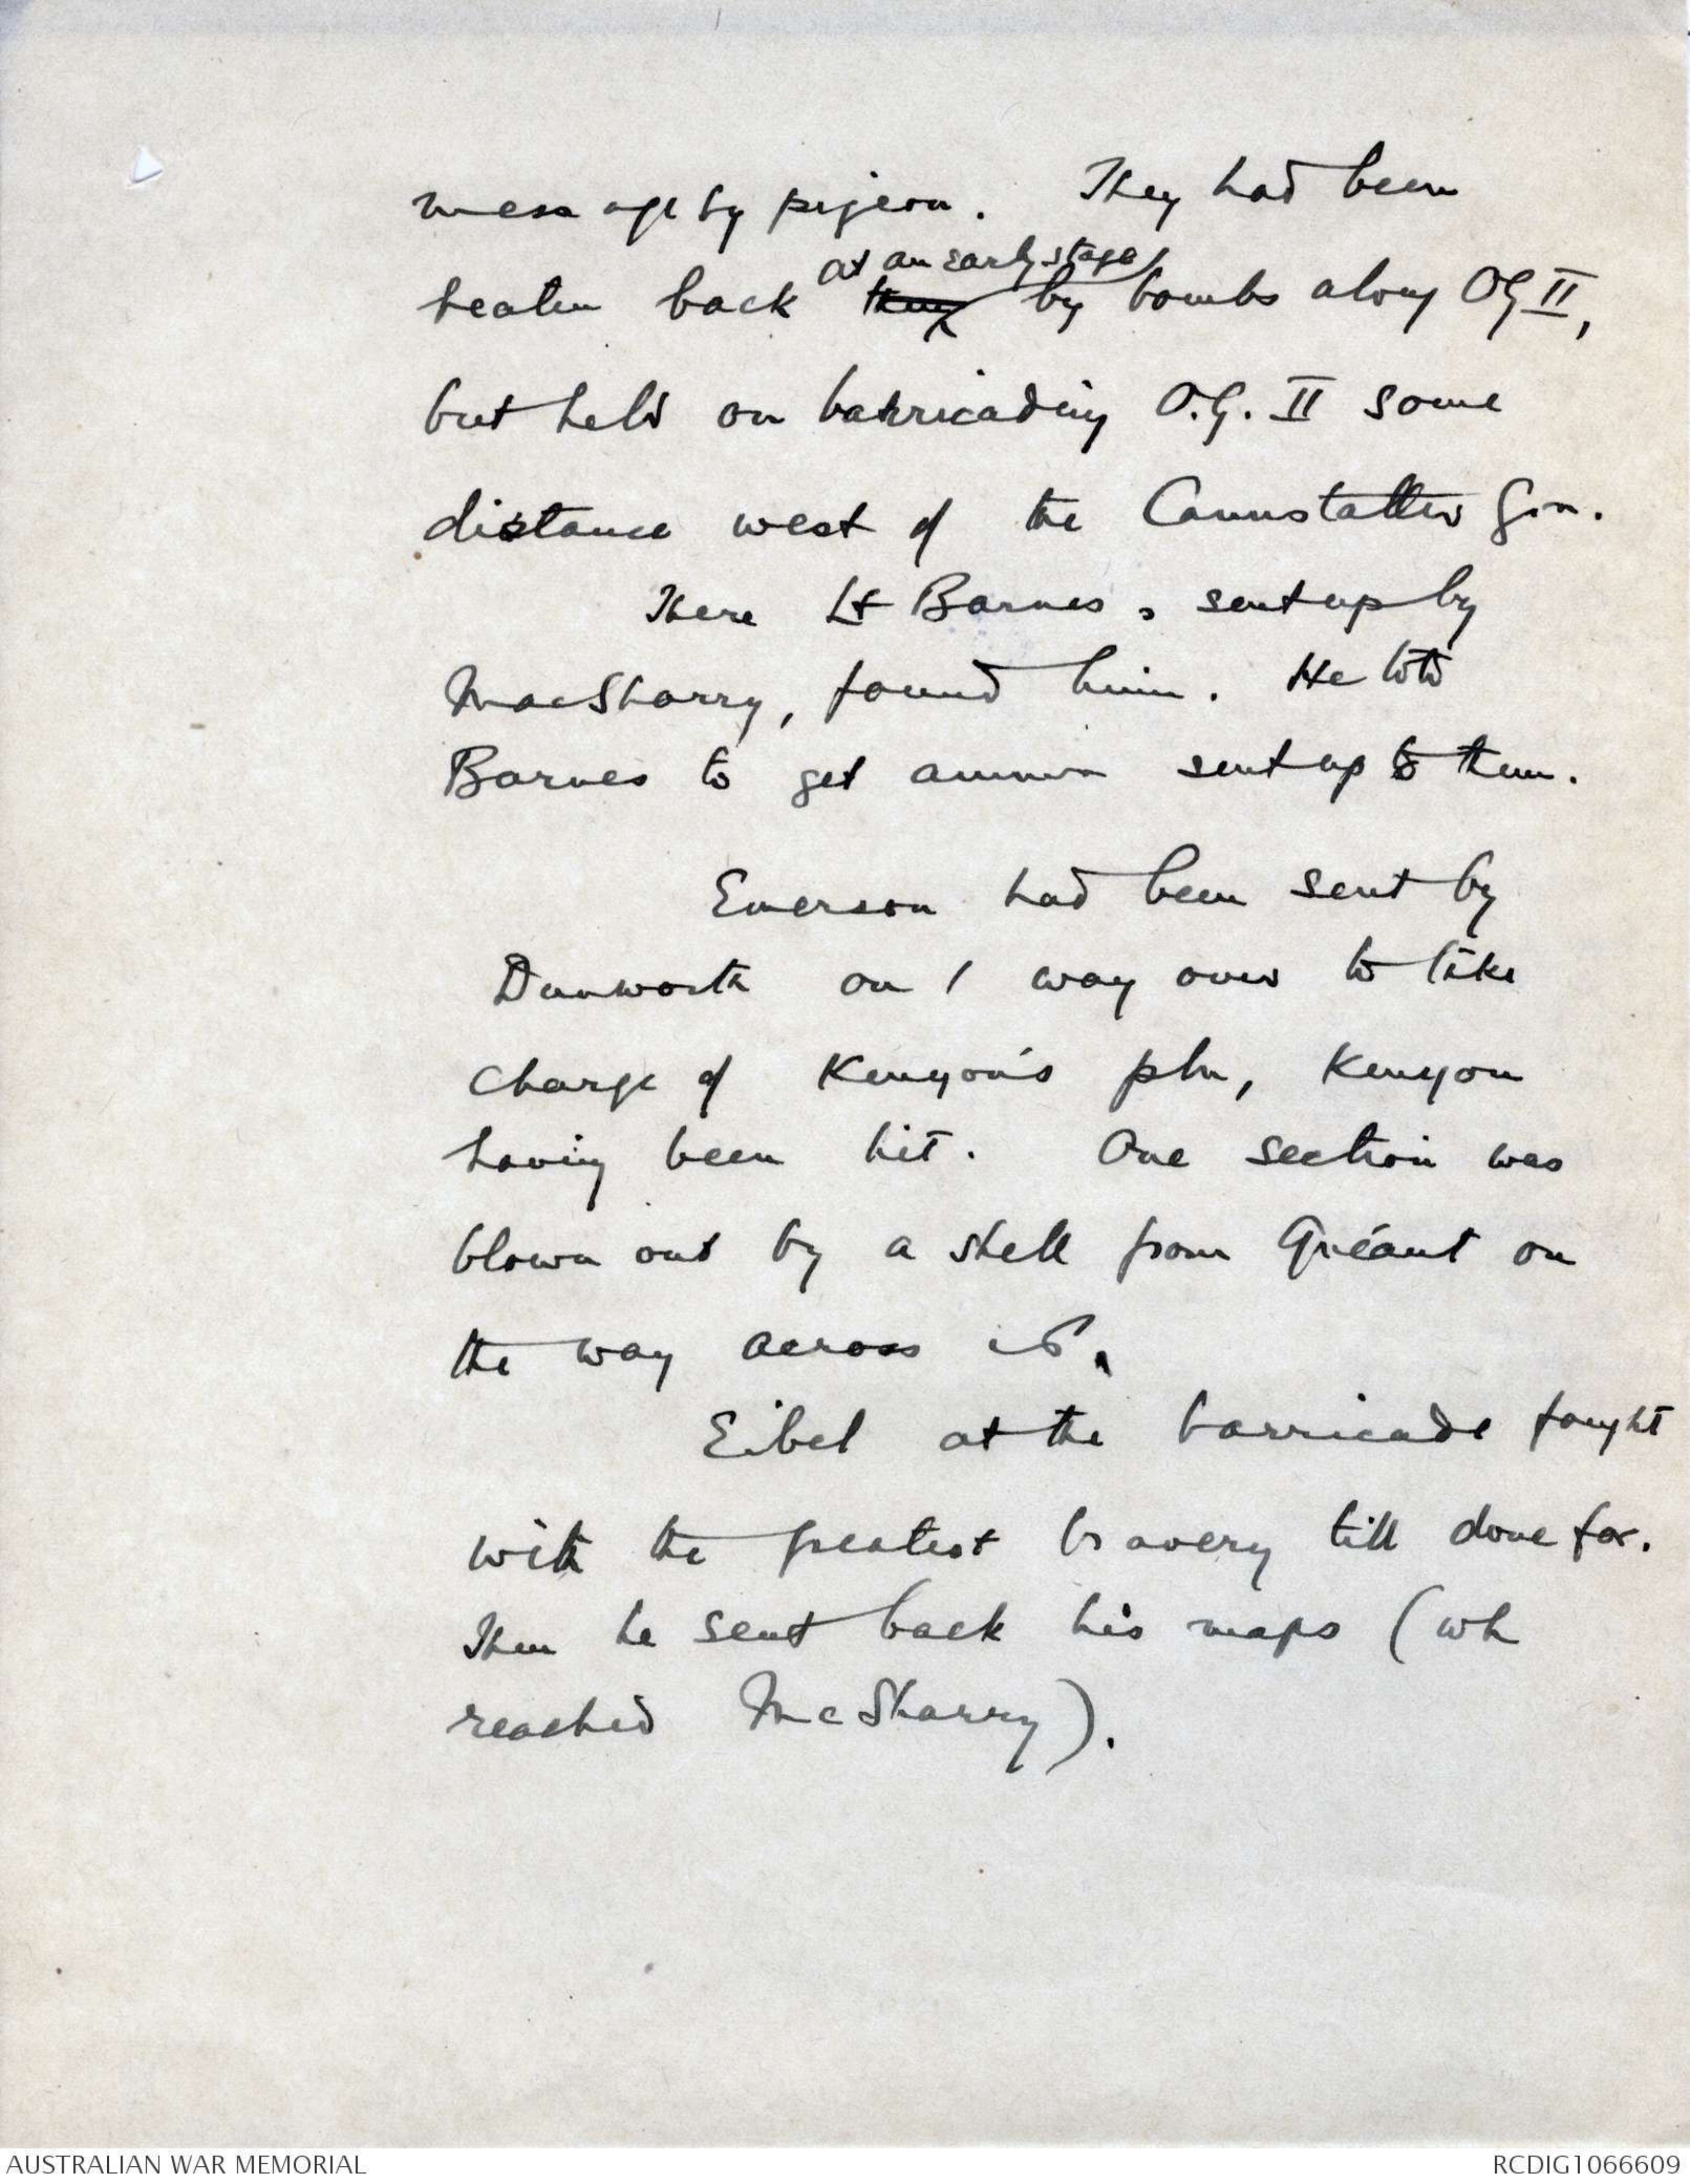 message by pigeon. They had been
at an early stage
beaten back they by bombs along OG II,
but held on barricading O.G. II some
distance west of the Cannstatter Grn.
There Lt Barnes, sent up by
MacSharry, found him. He told
Barnes to get ammn sent up to them.
Emerson had been sent by
Dunworth on / way over to take
charge of Kenyon's pln, Kenyon
having been hit. One section was
blown out by a shell from Quéant on
the way across
Eibel at the barricade fought
with the greatest bravery till done for.
Then he sent back his maps (wh
reached McSharry).
AUSTRALIAN WAR MEMORIAL
RCDIG1066609